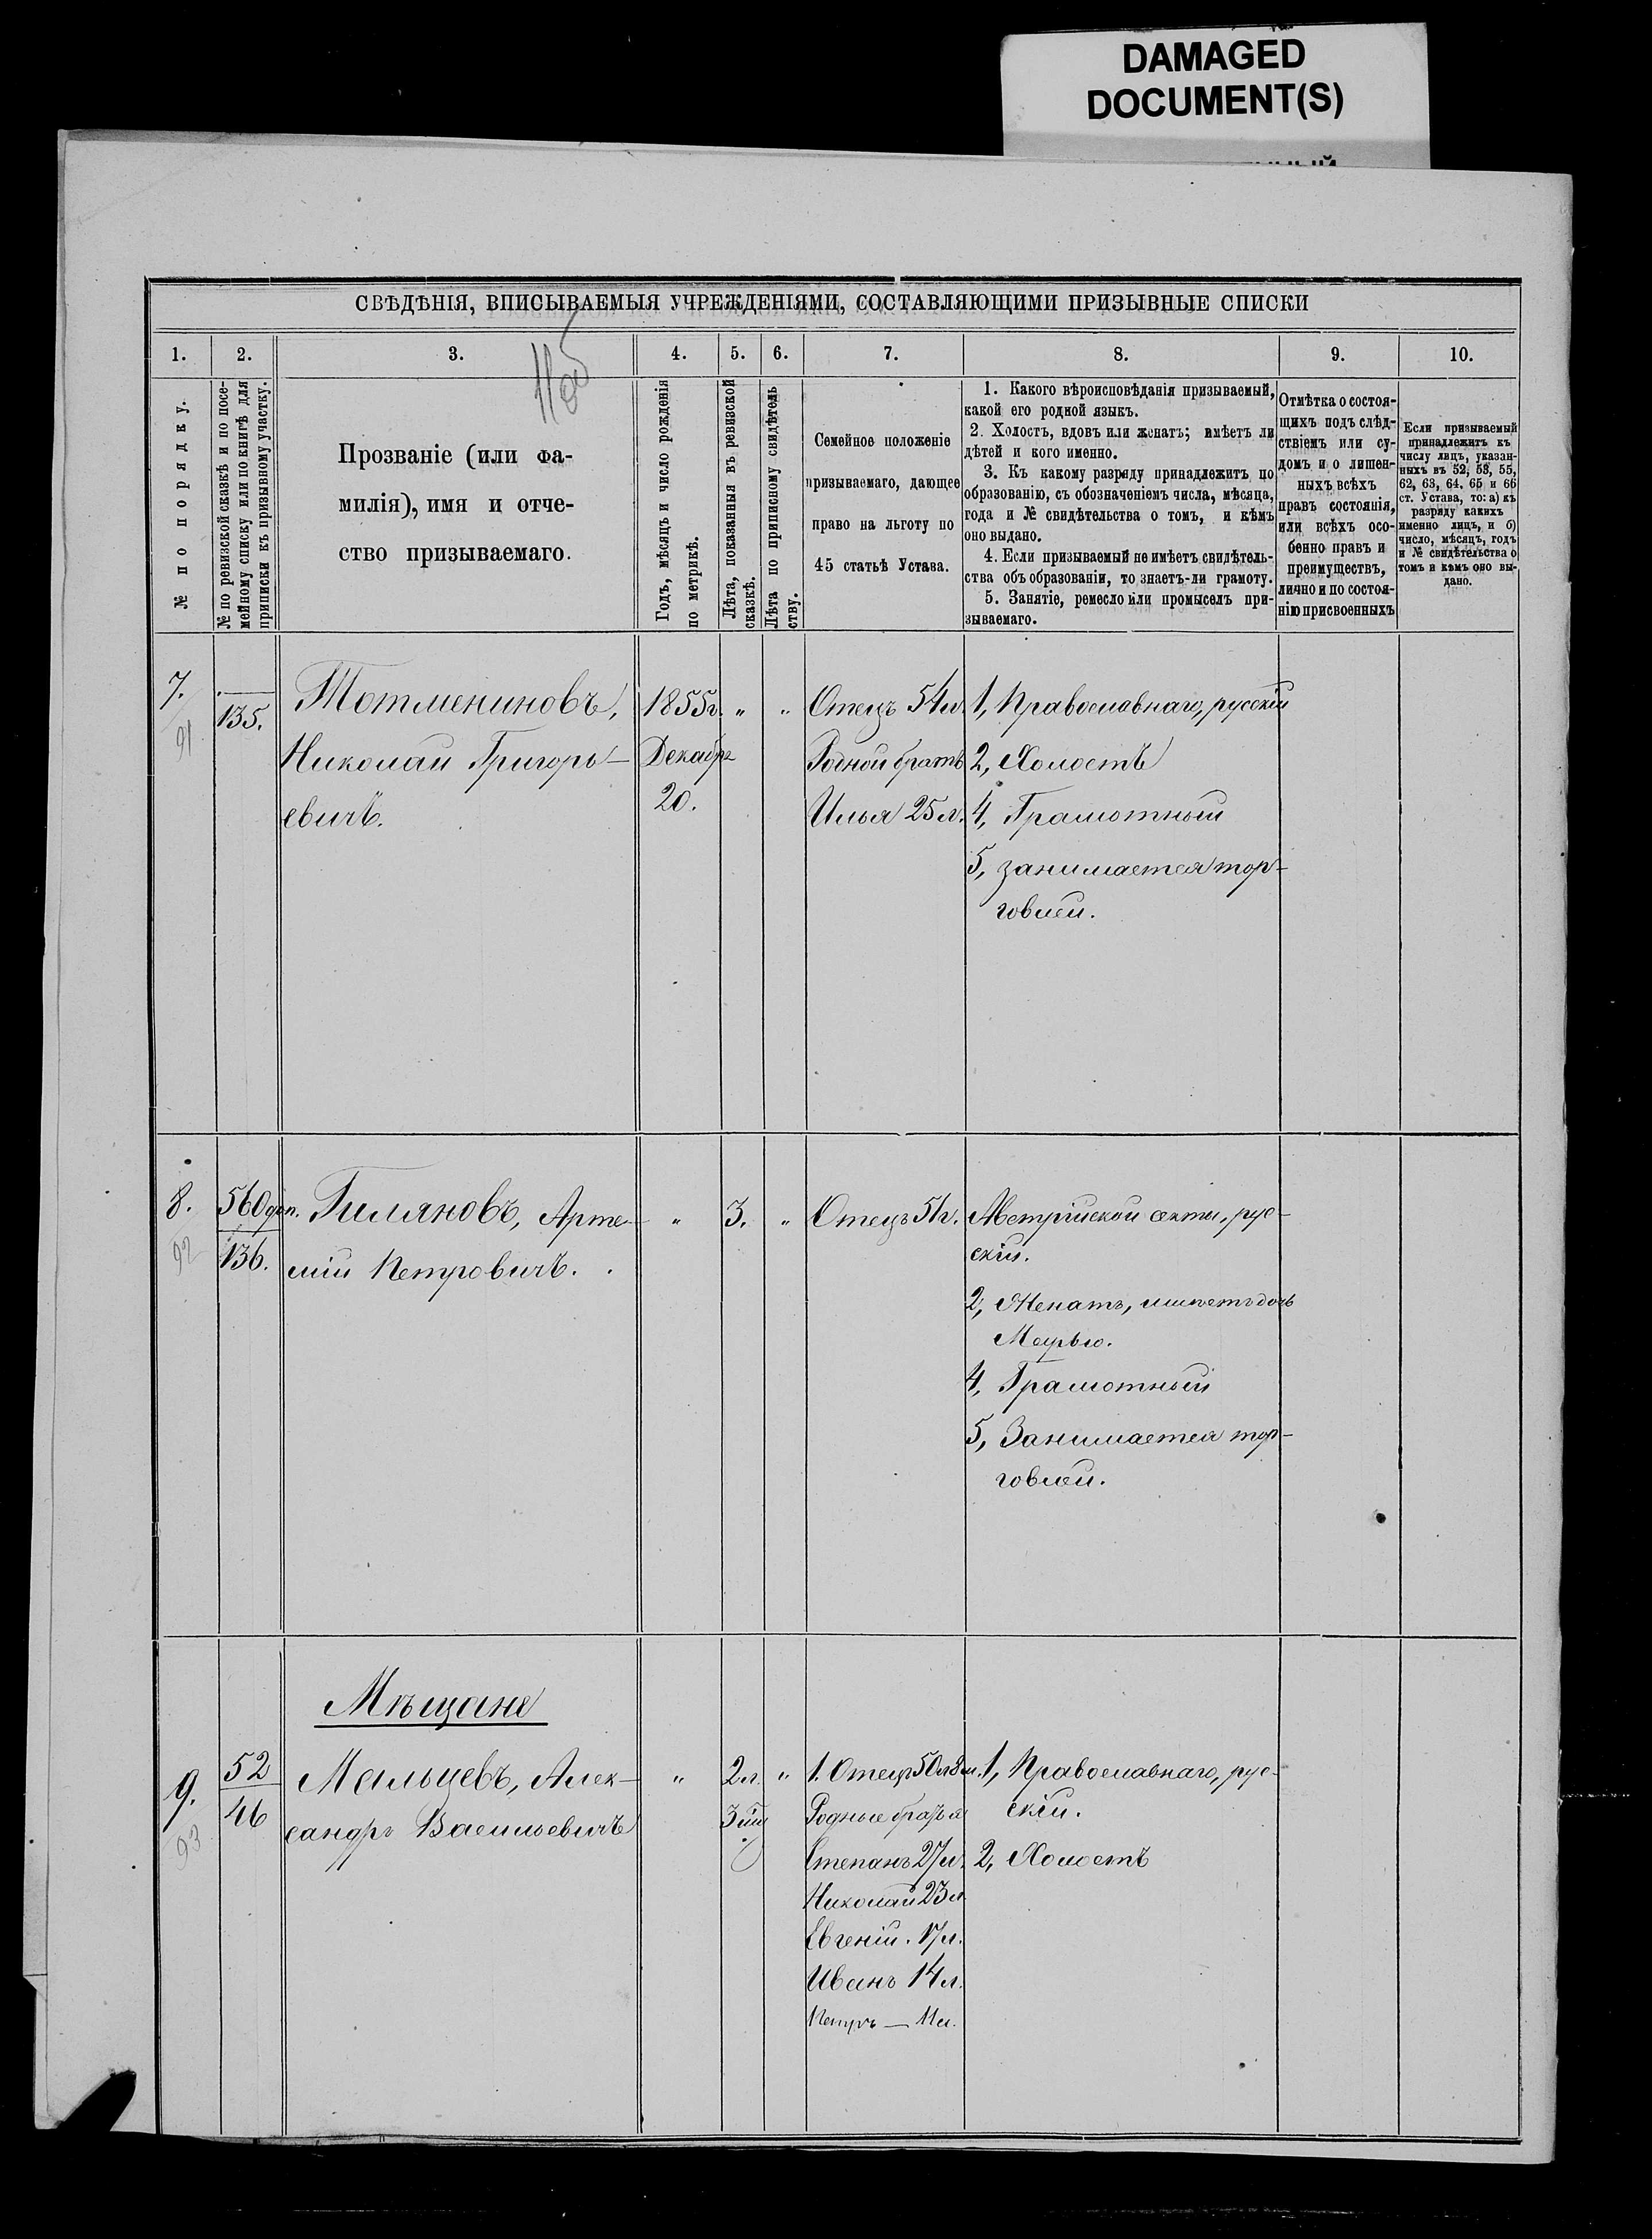 DAMAGED
DOCUMENT(S)
СВѢДѢНІЯ, ВПИСЫВАЕМЫЯ УЧРЕЖДЕНІЯМИ, СОСТАВЛЯЮЩИМИ ПРИЗЫВНЫЕ СПИСКИ
1. 2. 3. 4. 5. 6. 7. 8. 9. 10.
№ по порядку.
№ по ревизской сказкѣ и по посе-
мейному списку или по книгѣ для
приписки къ призывному участку.
Прозваніе (или фа-
милія), имя и отче-
ство призываемаго.
Годъ, мѣсяцъ и число рожденія
по метрикѣ.
Лѣта, показанныя въ ревизской
сказкѣ.
Лѣта по приписному свидѣтель
ству.
Семейное положеніе
призываемаго, дающее
право на льготу по
45 статьѣ Устава.
1. Какого вѣроисповѣданія призываемый,
какой его родной языкъ.
2. Холостъ, вдовъ или женатъ; имѣетъ ли
дѣтей и кого именно.
3. Къ какому разряду принадлежитъ по
образованію, съ обозначеніемъ числа, мѣсяца,
года и № свидѣтельства о томъ, и кѣмъ
оно выдано.
4. Если призываемый не имѣетъ свидѣтель-
ства объ образованіи, то знаетъ-ли грамоту.
5. Занятіе, ремесло или промыселъ при-
зываемаго.
Отмѣтка о состоя-
щихъ подъ слѣд-
ствіемъ или су-
домъ и о лишен-
ныхъ всѣхъ
правъ состоянія,
или всѣхъ осо-
бенно правъ и
преимуществъ,
лично и по состоя-
нію присвоенныхъ
Если призываемый
принадлежитъ къ
числу лицъ, указан-
ныхъ въ 52, 53, 55,
62, 63, 64, 65 и 66
ст. Устава, то: а) къ
разряду какихъ
именно лицъ, и б)
число, мѣсяцъ, годъ
и № свидѣтельства о
томъ и кѣмъ оно вы-
дано.
7.
91
135.
Тотмениновъ,
Николай Григорь-
евичъ.
1855г.
Декабря
20.
" "
Отецъ 54л.
Родной братъ
Илья 25л.
1, Православнаго, русскій
2, Холостъ
4, Грамотный
5, занимается тор-
говлей.
8.
92
560 доп.
136.
Гиляновъ, Арте-
мій Петровичъ.
" 3. "
Отецъ 51г.
Австрійской секты, рус-
скій.
2, Женатъ, имѣетъ дочь
Марью.
4, Грамотный
5, Занимается тор-
говлей.
Мѣщане
9.
93
52
46
Мальцевъ, Алек-
сандръ Васильевичъ
"
2л.
3
"
1. Отецъ 50л 8м.
Родные братья
Степанъ 27л.
Николай 23л
Евгеній. 17л.
Иванъ 14л.
Петръ — 11л.
1, Православнаго, рус-
скій.
2, Холостъ